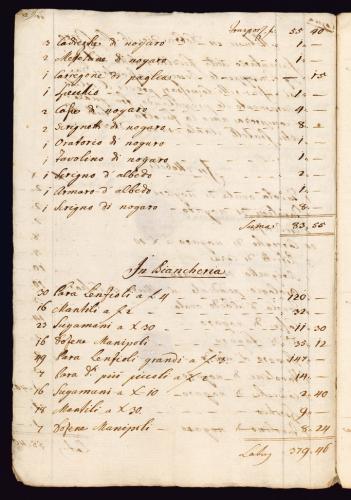 55 40
3 Cadieghe di nogaro 1. —
2 di nogaro 1. —
1 Caregone di paglia — 15
1 1. —
2 Casse di nogaro 4. —
2 Scrigneti di nogaro 8. —
1 Oratorio di nogaro 1. —
1 Tavolino di nogaro 1. —
1 Scrigno d'albedo 2. —
1 Armaro d'albedo 1. —
1 Scrigno di nogaro 8. —
Suma: 83. 55
In Biancheria
30 Para Lenzioli a £ 4 120. —
16 Mantili a £ 2 32. —
23 Sugamani a X. 30 11. 30
16 Dozene Manipoli 35. 12
49 Para Lenzioli grandi a £ 3 147. —
7 Para di più piccoli a £ 2 14. —
16 Sugamani a X. 10 2. 40
18 Mantili a X. 30 9. —
7 Dozene Manipoli 8. 24
379. 46